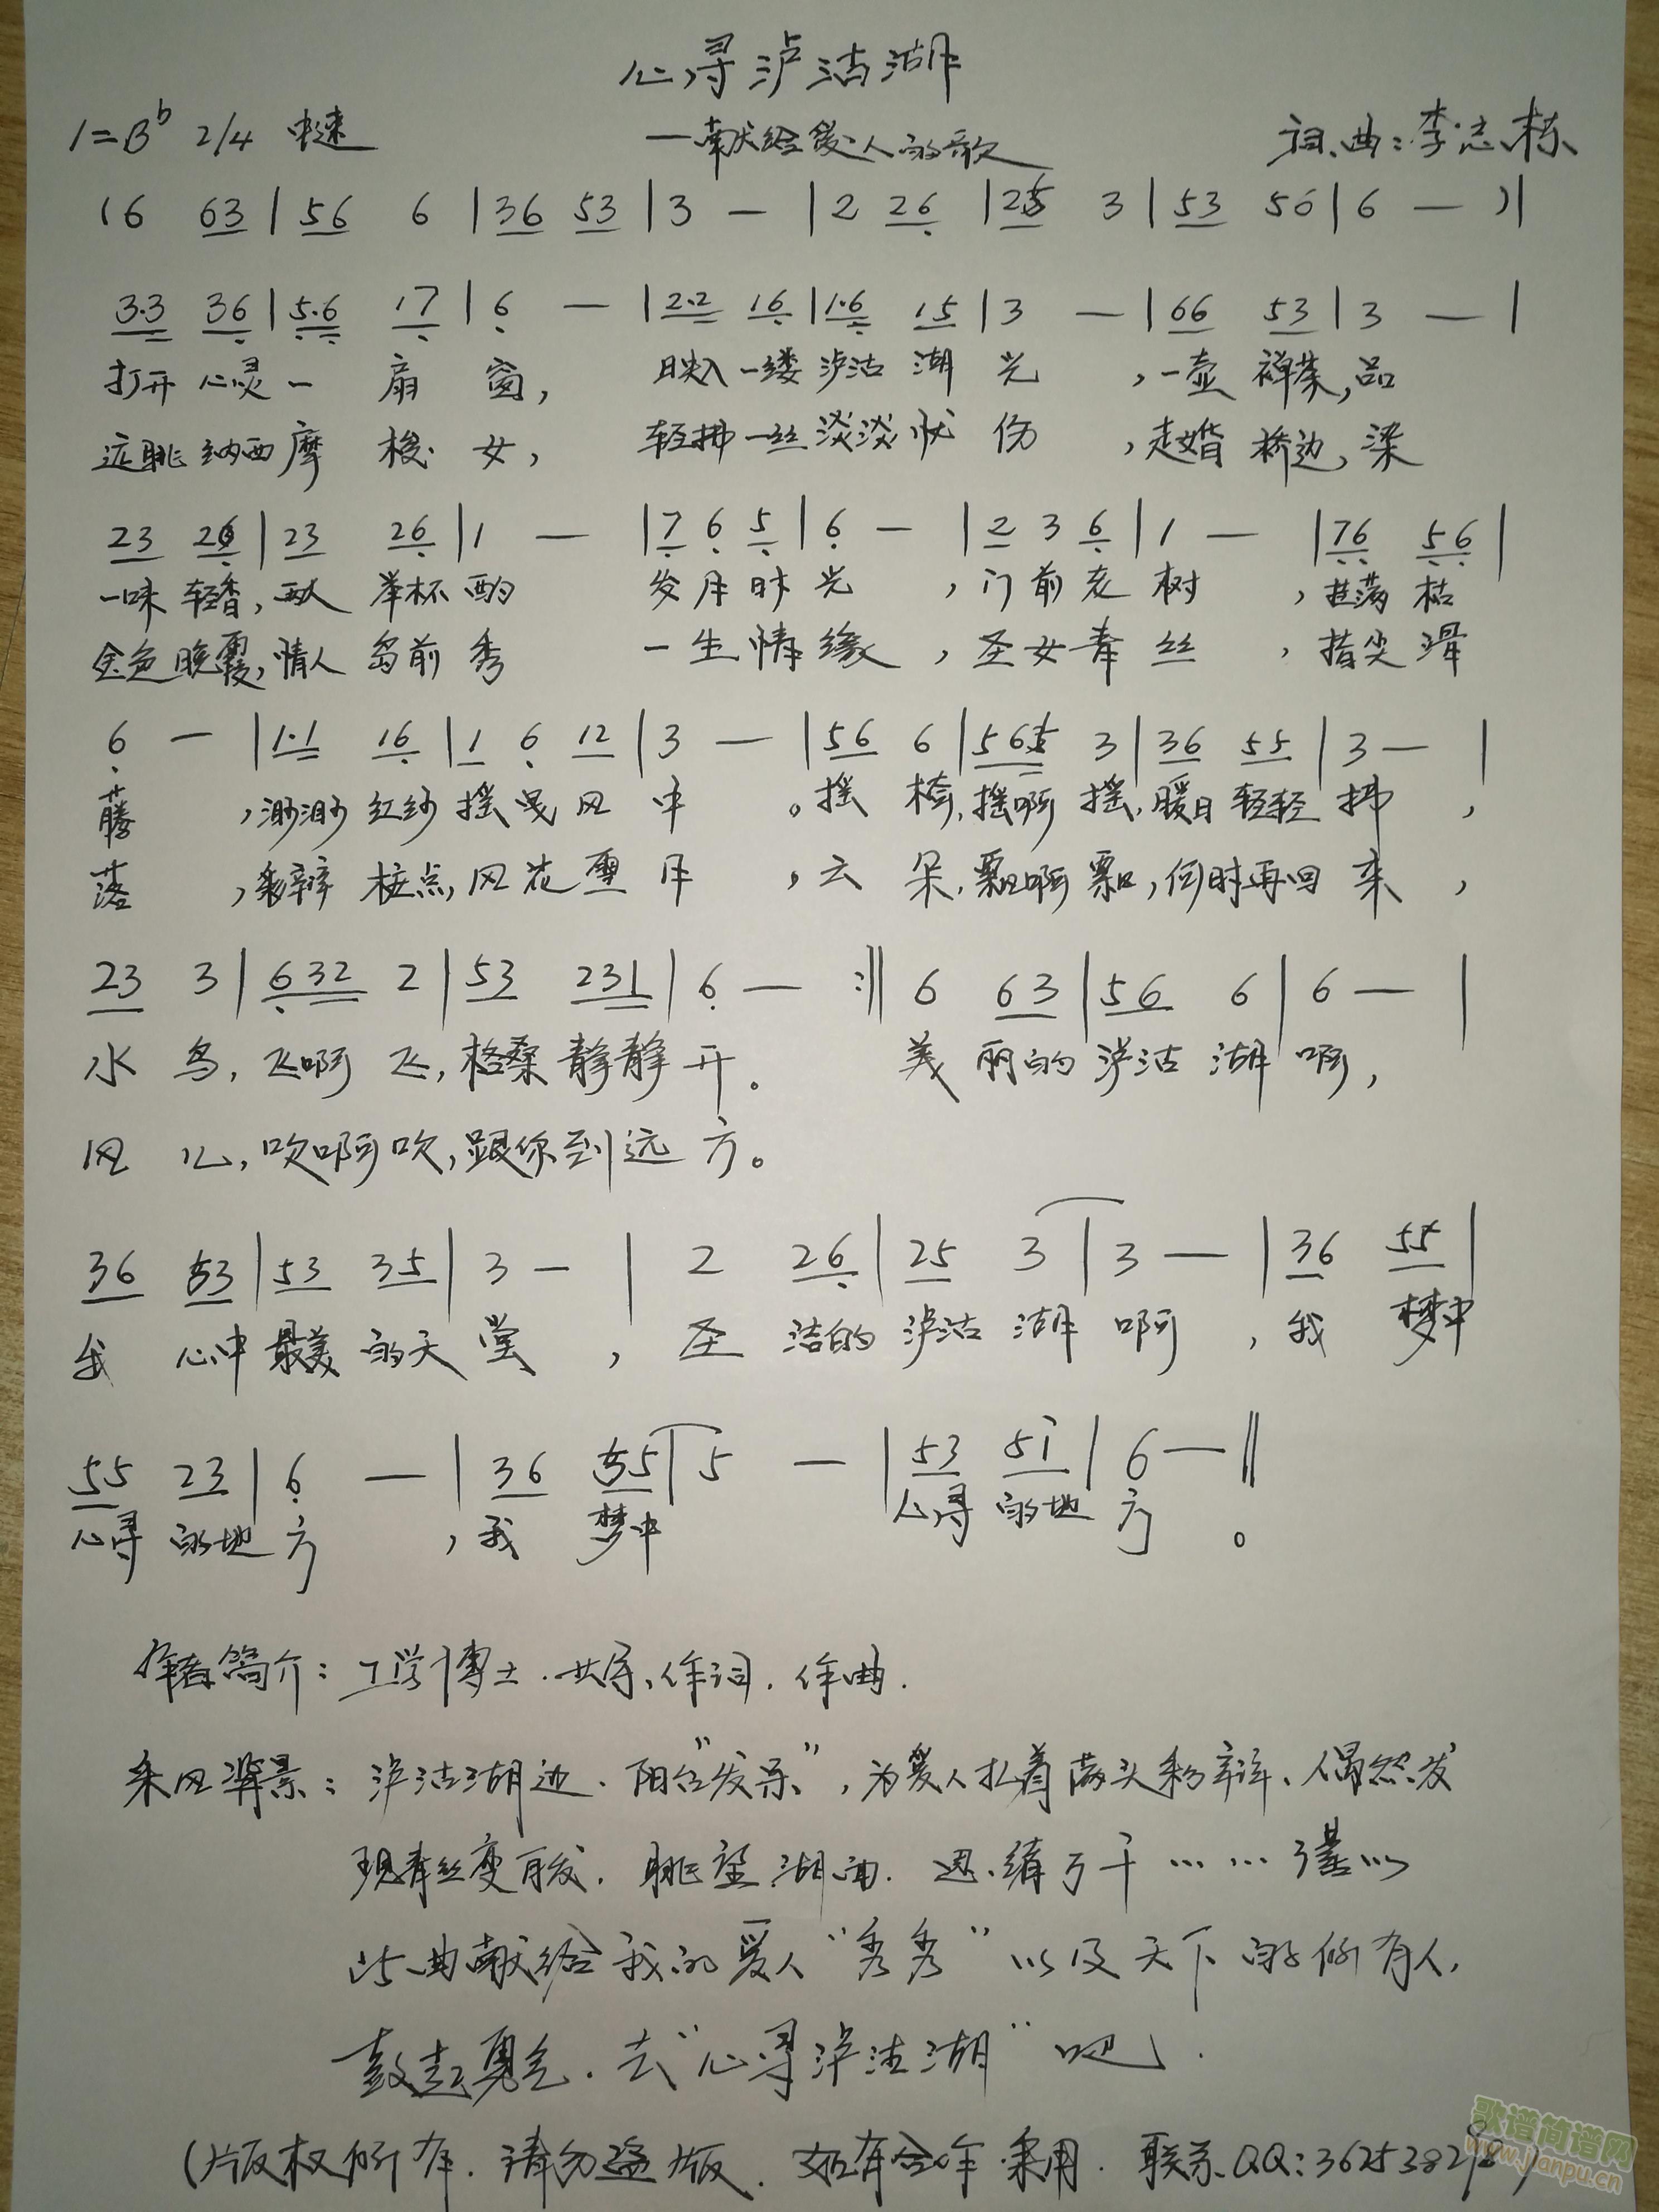 心寻泸沽湖
1=B♭ 2/4 中速 —献给爱人的歌 词、曲：李志栋
(6 63|56 6|36 53|3 —|2 26|25 3|53 56|6 —)|
3·3 36|5·6 17|6 —|2·2 16|1·6 15|3 —|66 53|3 —|
打开心灵一扇窗，映入一缕泸沽湖光，一壶禅茶，品
远眺纳西摩梭女，轻拂一丝淡淡忧伤，走婚桥边，染
23 26|23 26|1 —|7 6 5|6 —|2 3 6|1 —|76 56|
一味轻香，两人举杯酌 岁月时光，门前老树，挂满枯
金色晚霞，情人岛前秀 一生情缘，圣女青丝，指尖滑
6 —|1·1 16|1 6 12|3 —|56 6|565 3|36 55|3 —|
藤，渺渺红纱摇曳风中。摇橹，摇啊摇，暖日轻轻拂，
落，彩辫 点，风花雪月，云朵，飘啊飘，何时再回来，
23 3|632 2|53 231|6 — :‖ 6 63|56 6|6 —|
水鸟，飞啊飞，格桑静静开。 美丽的泸沽湖啊，
风儿，吹啊吹，跟你到远方。
36 53|53 35|3 —|2 26|25 3|3 —|36 55|
我心中最美的天堂，圣洁的泸沽湖啊，我梦中
55 23|6 —|36 55|5 —|53 51|6 —‖
心寻的地方，我梦中心寻的地方。
作者简介：工学博士．共导、作词．作曲．
采风背景：泸沽湖边．阳台“发呆”，为爱人扎着满头彩辫、偶然发
现青丝变白发．眺望湖面．思绪万千……谨以
此曲献给我的爱人“秀秀”以及天下的所有人，
鼓起勇气．去“心寻泸沽湖”吧．
(版权所有．请勿盗版．如有合作采用．联系QQ：36253829
歌谱简谱网
www.jianpu.cn